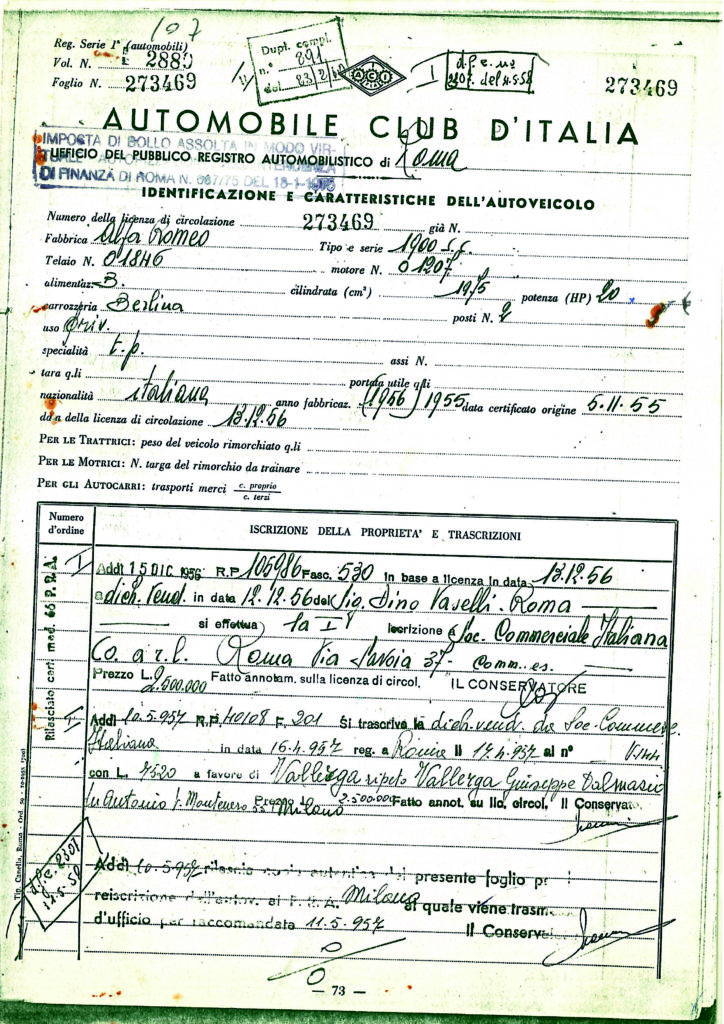 107
Reg. Serie Iª (automobili)
Vol. N. 2880
Foglio N. 273469
Dupl. compl.
n.º 891
del 23/2/
ACI
I
d.p.c. nº
2307. del 11.5.58
273469
AUTOMOBILE CLUB D'ITALIA
IMPOSTA DI BOLLO ASSOLTA IN MODO VIR-
UFFICIO DEL PUBBLICO REGISTRO AUTOMOBILISTICO di Roma
DI FINANZA DI ROMA N. 667/75 DEL 18-1-1975
IDENTIFICAZIONE E CARATTERISTICHE DELL'AUTOVEICOLO
Numero della licenza di circolazione 273469 già N.
Fabbrica Alfa Romeo Tipo e serie 1900
Telaio N. 01846 motore N. 01207
alimentaz. B. cilindrata (cm³) 1975 potenza (HP) 20
carrozzeria Berlina posti N. 2
uso priv.
specialità t.p. assi N.
tara q.li portata utile q.li
nazionalità italiana anno fabbricaz. (1956) 1955 data certificato origine 5.11.55
data della licenza di circolazione 13.12.56
PER LE TRATTRICI: peso del veicolo rimorchiato q.li
PER LE MOTRICI: N. targa del rimorchio da trainare
PER GLI AUTOCARRI: trasporti merci c. proprio
c. terzi
Numero d'ordine
ISCRIZIONE DELLA PROPRIETA' E TRASCRIZIONI
I Addì 15 DIC 1956 R.P. 105986 Fasc. 530 in base a licenza in data 13.12.56
a dich. vend. in data 12.12.56 del Sig. Dino Vaselli - Roma
si effettua la Iª Iscrizione a Soc. Commerciale Italiana
Co. a r.l. Roma Via Savoia 37 - comm. es.
Prezzo L. 2.500.000 Fatto annotam. sulla licenza di circol. IL CONSERVATORE
II Addì 10.5.957 R.P. 40108 F. 201 Si trascrive la dich. vend. da Soc. Commerc.
Italiana in data 16.4.957 reg. a Roma il 17.4.957 al nº
con L. 7520 a favore di Vallerga ripeto Vallerga Giuseppe Dalmazio
fu Antonio Milano Prezzo L. 2.500.000 Fatto annot. su lic. circol. Il Conservat.
Addì 10.5.957 rilascio copia autentica del presente foglio per
reiscrizione dell'autov. al P.R.A. Milano al quale viene trasm.
d'ufficio per raccomandata 11.5.957 Il Conservatore
Rilasciato cert. mod. 65 P.R.A.
d.p.c. 2307
11.5.58
Tip. Casella, Roma - Ord.
— 73 —